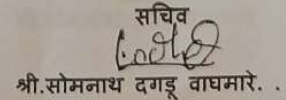 सचिव
श्री.सोमनाथ दगडू वाघमारे. .